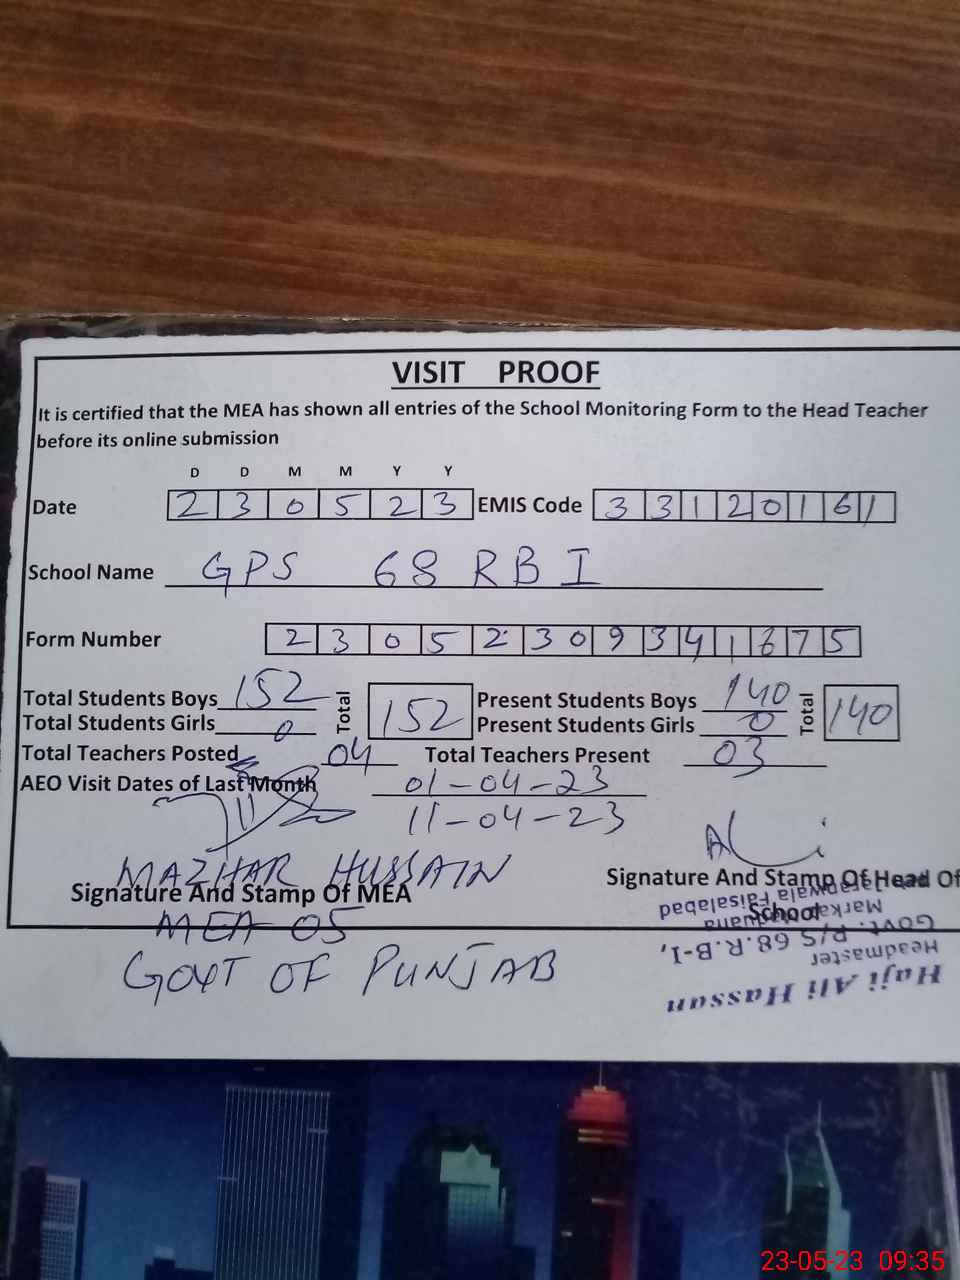 VISIT PROOF
It is certified that the MEA has shown all entries of the School Monitoring Form to the Head Teacher
before its online submission
D D M M Y Y
Date 2 3 0 5 2 3 EMIS Code 3 3 1 2 0 1 6 1
School Name GPS 68 RB I
Form Number 2 3 0 5 2 3 0 9 3 4 1 6 7 5
Total Students Boys 152 Total 152 Present Students Boys 140 Total 140
Total Students Girls 0 Present Students Girls 0
Total Teachers Posted 04 Total Teachers Present 03
AEO Visit Dates of Last Month 01-04-23
11-04-23
MAZHAR HUSSAIN
Signature And Stamp Of MEA Signature And Stamp Of Head Of
School
MEA 05
GOVT OF PUNJAB
Haji Ali Hassan
Headmaster
Govt. P/S 68.R.B-I,
Markaz
Faisalabad
23-05-23 09:35